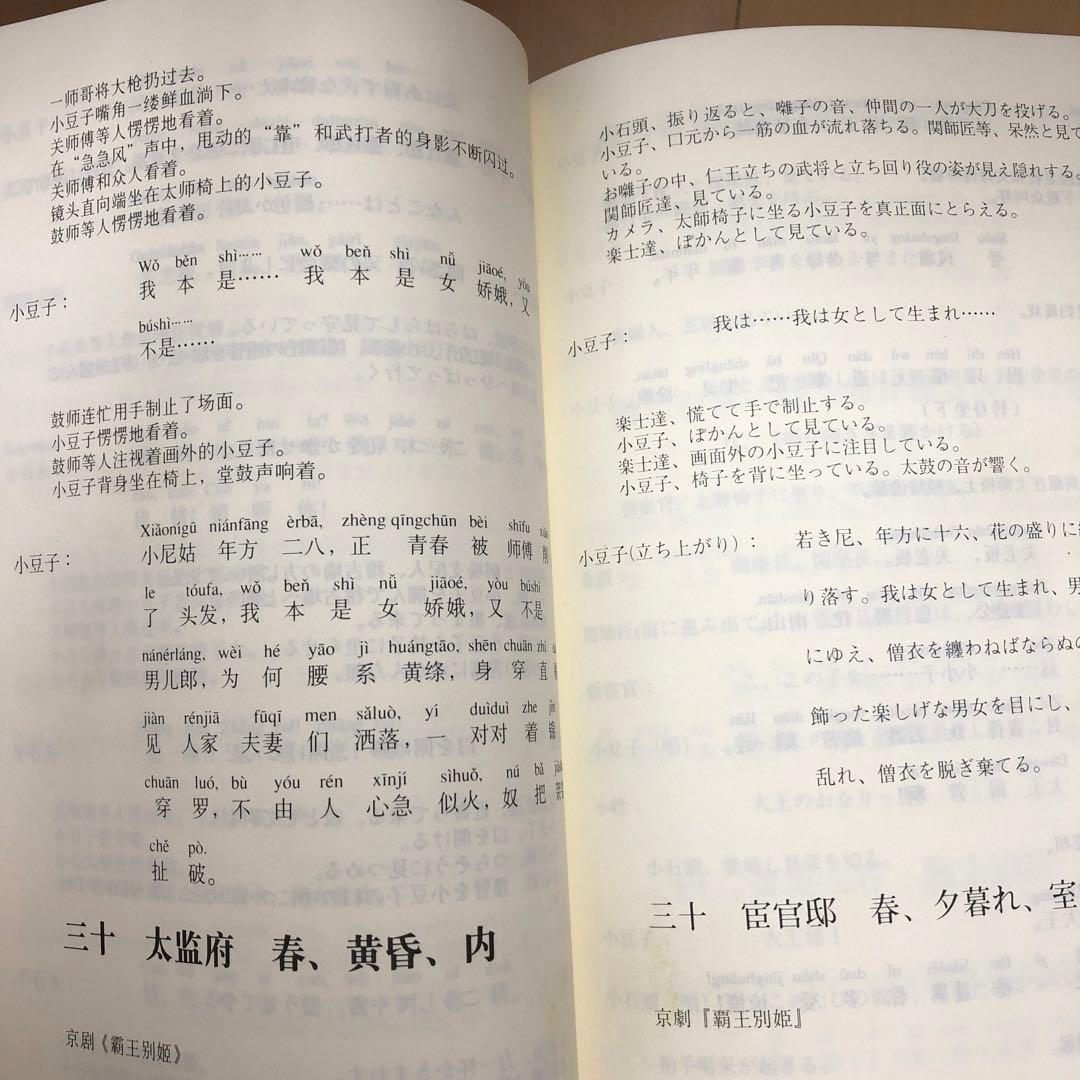 一师哥将大枪扔过去。
小豆子嘴角一缕鲜血淌下。
关师傅等人愣愣地看着。
在“急急风”声中，甩动的“靠”和武打者的身影不断闪过。
关师傅和众人看着。
镜头直向端坐在太师椅上的小豆子。
鼓师等人愣愣地看着。
Wǒ běn shì…… wǒ běn shì nǚ jiāoé, yòu
小豆子： 我 本 是…… 我 本 是 女 娇娥，又
búshì……
不是……
鼓师连忙用手制止了场面。
小豆子愣愣地看着。
鼓师等人注视着画外的小豆子。
小豆子背身坐在椅上，堂鼓声响着。
Xiǎonígū niánfāng èrbā, zhèng qīngchūn bèi shīfu
小豆子： 小尼姑 年方 二八，正 青春 被 师傅 削
le tóufa, wǒ běn shì nǚ jiāoé, yòu búshì
了 头发，我 本 是 女 娇娥，又 不是
nánérláng, wèi hé yāo jì huángtāo, shēn chuān zhí
男儿郎，为 何 腰 系 黄绦，身 穿 直
jiàn rénjiā fūqī men sǎluò, yí duìduì zhe jǐn
见 人家 夫妻 们 洒落，一 对对 着 锦
chuān luó, bù yóu rén xīnjí sìhuǒ, nú bǎ
穿 罗，不 由 人 心急 似火，奴 把 袈
chě pò.
扯 破。
三十 太监府 春、黄昏、内
京剧《霸王别姬》
小石頭、振り返ると、囃子の音、仲間の一人が大刀を投げる。
小豆子、口元から一筋の血が流れ落ちる。関師匠等、呆然と見て
いる。
お囃子の中、仁王立ちの武将と立ち回り役の姿が見え隠れする。
関師匠達、見ている。
カメラ、太師椅子に坐る小豆子を真正面にとらえる。
楽士達、ぽかんとして見ている。
小豆子： 我は……我は女として生まれ……
楽士達、慌てて手で制止する。
小豆子、ぽかんとして見ている。
楽士達、画面外の小豆子に注目している。
小豆子、椅子を背に坐っている。太鼓の音が響く。
小豆子(立ち上がり)： 若き尼、年方に十六、花の盛りに
り落す。我は女として生まれ、男
にゆえ、僧衣を纏わねばならぬの
飾った楽しげな男女を目にし、
乱れ、僧衣を脱ぎ棄てる。
三十 宦官邸 春、夕暮れ、室
京劇『覇王別姫』